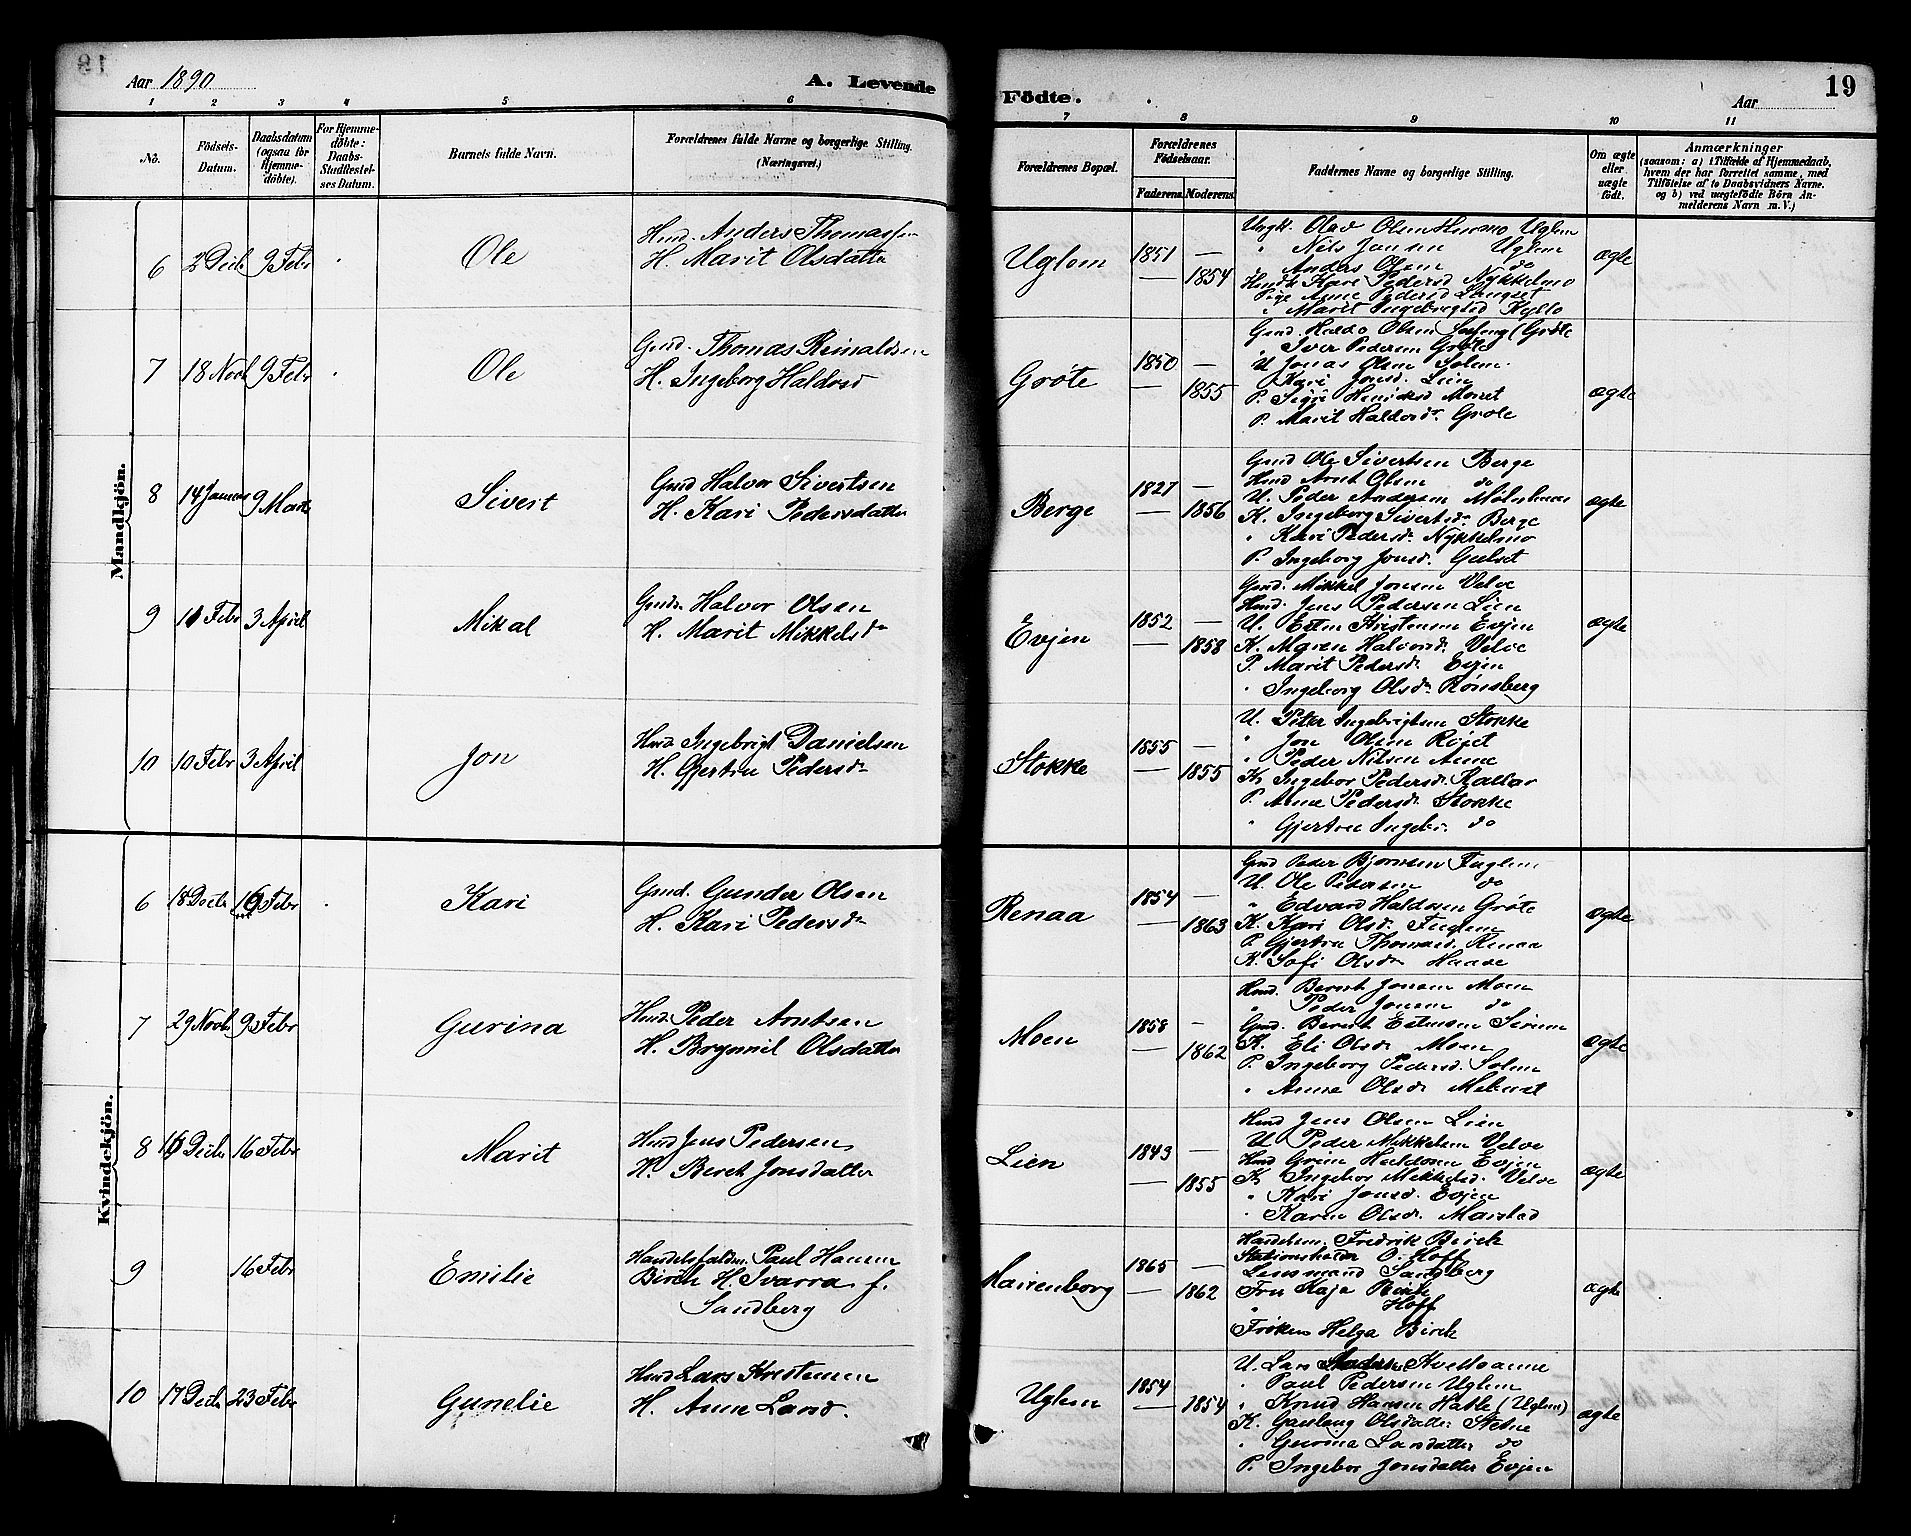 Aar 1890
A. Levende
Födte.
Aar
19
1 2 3 4 5 6 7 8 9 10 11
No.
Födsels-Datum.
Daabsdatum (ogsaa for Hjemme-döbte).
For Hjemme-döbte: Daabs-Stadfæstel-ses Datum.
Barnets fulde Navn.
Forældrenes fulde Navne og borgerlige Stilling.
(Næringsvei.)
Forældrenes Bopæl.
Forældrenes Födselsaar.
Faderens. Moderens.
Faddernes Navne og borgerlige Stilling.
Om ægte eller uægte født.
Anmærkninger
(saasom: a) i Tilfælde af Hjemmedaab,
hvem der har forrettet samme, med
Tilföielse af to Daabsvidners Navne.
og b) ved uægtefödte Börn An-
melderens Navn m. V.)
Mandkjön.
6 2 Decbr 9 Febr Ole
Hmd. Anders Thomassen
H. Marit Olsdatter
Uglem 1851 — — 1854
Nils Jonsen Uglem
Anders Olsen do
Kari Pedersd Nykkelmo
Pige Anne Pedersd Langset
Marit Ingebrigtsd Kyllo
ægte
7 18 Novb 9 Febr Ole
Gmd. Thomas Reinaldsen
H. Ingeborg Haldosd
Grøte 1850 — — 1855
Iver Pedersen Grøte
U Jonas Olsen Solem
Kari Jonsd. Lien
P. Marit Haldorsdr Grøte
ægte
8 14 Januar 9 Marts Sivert
Gmd Halvor Sivertsen
H. Kari Pedersdatter
Berge 1827 — — 1856
Gmd Ole Sivertsen Berge
Hmd Arnt Olsen do
U. Peder Andersen
K. Ingeborg Sivertsdr Berge
" Kari Pedersdr Nykkelmo
P. Ingeborg Jonsd. Gulset
ægte
9 11 Febr 3 April Mikal
Gmdr Halvor Olsen
H. Marit Mikkelsdr
Evjen 1852 — — 1858
Gmd. Mikkel Jonsen Velve
Hmd. Jens Pedersen Lien
U. Esten Kristensen Evjen
K. Maren Halvorsd. Velve
P. Marit Pedersdr Evjen
" Ingeborg Olsdr Rønsberg
ægte
10 10 Febr 3 April Jon
Hmd Ingebrigt Danielsen
H. Gjertru Pedersdr
Stokke 1855 — — 1855
U. Peter Ingebrigtsen Stokke
" Jon Olsen Røset
" Peder Nilsen Aune
K Ingebor Pedersdr Kallar
P. Anne Pedersdr Stokke
" Gjertru Ingebr. do
Kvindekjön.
6 18 Decbr 16 Febr Kari
Gmd. Gunder Olsen
H. Kari Pedersdr
Renaa 1854 — — 1863
Gmd Peder Bjørnsen Fuglem
U. Ole Pedersen do
" Edvard Haldosen Grøte
K. Kari Olsdr Fuglem
P. Gjertru Thomasd. Renaa
K. Sofi Olsdr
ægte
7 29 Novbr 9 Febr Gurina
Hmd. Peder Arntsen
H. Brynnil Olsdatter
Moen 1858 — — 1862
Hmd. Bersvt Jonsen Moen
" Peder Jonsen do
Gmd. Berent Estensen
K. Eli Olsdr Moen
P. Ingeborg Pedersd. Solem
" Anna Olsdr Mebust
ægte
8 16 Decbr 16 Febr Marit
Hmd Jens Pedersen
H. Beret Jonsdatter
Lien 1843 — — 1855
Hmd Jens Olsen Lien
U Peder Mikkelsen Velve
Hmd Grim Haldosen Evjen
K Ingebor Mikkelsd. Velve
" Kari Jonsd. Evjen
" Karen Olsdr Marstad
ægte
9 16 Febr Emilie
Handelsfuldm. Paul Hansen
Birch H. Ivarra f.
Sandberg
Mairenborg 1865 — — 1862
Handelsm. Fredrik Birch
Stationsholder O. Hoff
Lensmand Sandberg
Fru Kaja Birch
" Hoff
Frøken Helga Birch
ægte
10 17 Decbr 23 Febr Gunelie
Hmd Lars Kristensen
H. Anne Larsd.
Uglem 1854 — — 1854
" Paul Pedersen Uglem
" Knud Hansen Hatle (Uglem)
K. Gunlaug Olsdatter Stene
" Gurina Larsdatter do
P. Ingebor Jonsdatter Evjen
ægte